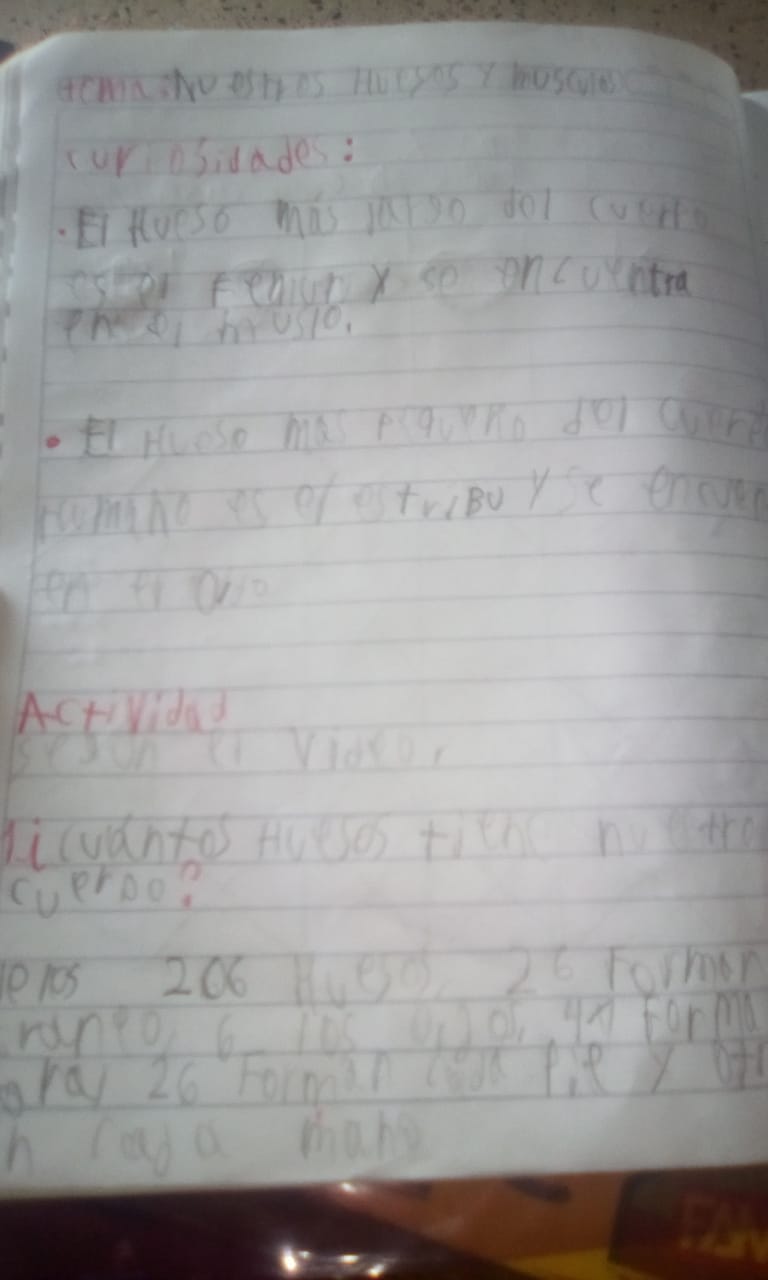 tema: Nuestros Huesos y musculos
curiosidades:
• El Hueso más largo del cuerpo
es el Femur y se encuentra
en el muslo.
• El Hueso mas pequeño del cuerp
Humano es el estribu y se encuen
en el oido
Actividad
según el video,
1. ¿cuántos Huesos tiene nuestro
cuerpo?
206 Huesos, 26 Forman
raneo, 6 los oidos, Forma
26 Forman cada pie y otr
n cada mano
FAM